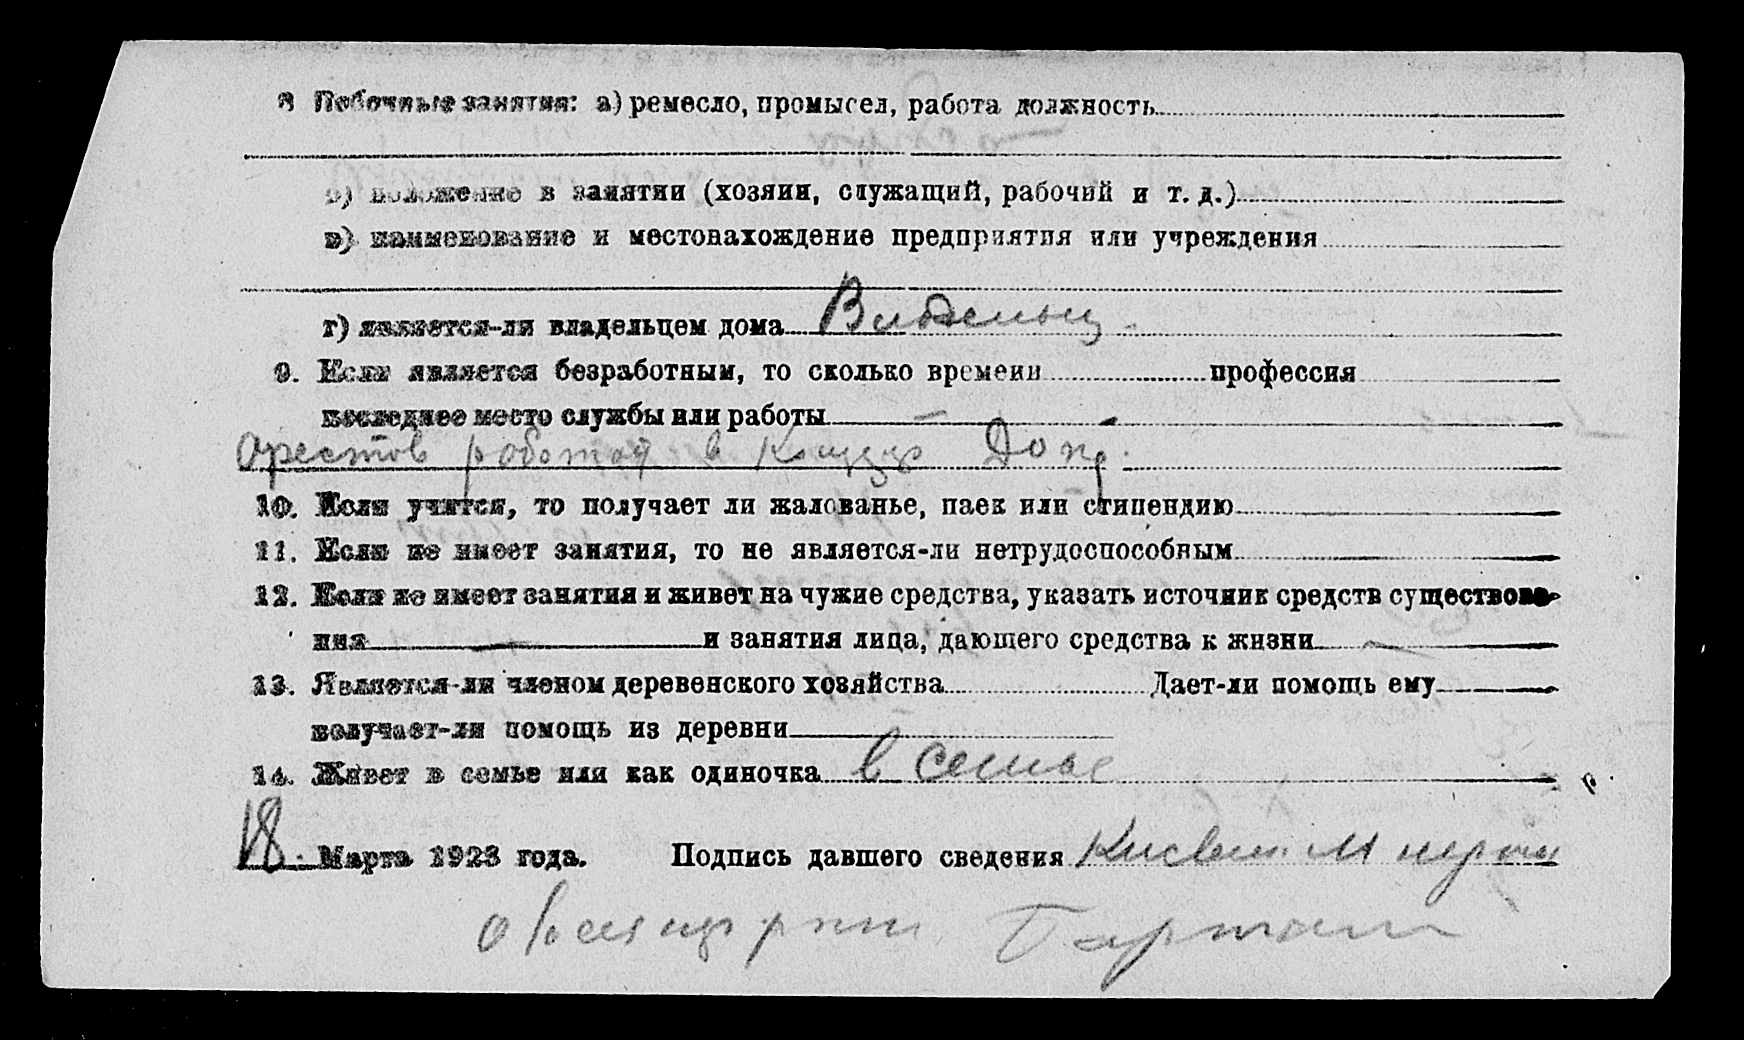 8 Побочные занятия: а) ремесло, промысел, работа должность
б) положение в занятии (хозяин, служащий, рабочий и т. д.)
в) наименование и местонахождение предприятия или учреждения
г) является-ли владельцем дома
9. Если является безработным, то сколько времени профессия
последнее место службы или работы
в Допр.
10. Если учится, то получает ли жалованье, паек или стипендию
11. Если не имеет занятия, то не является-ли нетрудоспособным
12. Если не имеет занятия и живет на чужие средства, указать источник средств существова-
ния и занятия лица, дающего средства к жизни
13. Является-ли членом деревенского хозяйства Дает-ли помощь ему
получает-ли помощь из деревни
14. Живет в семье или как одиночка в семье
18 Марта 1923 года. Подпись давшего сведения